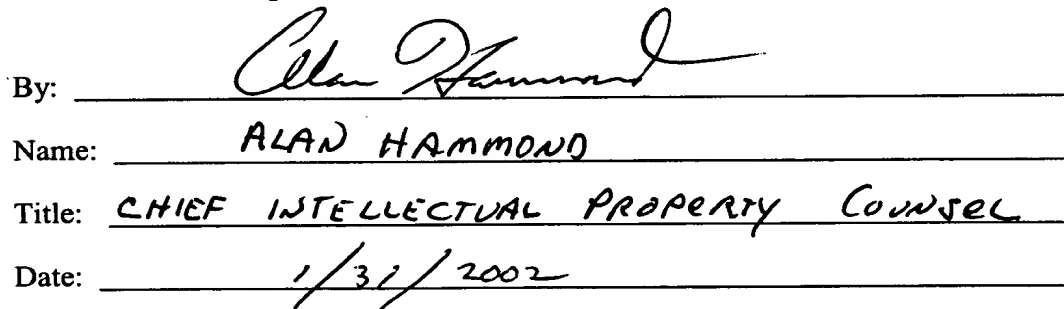 By: Alan Hammond
Name: ALAN HAMMOND
Title: CHIEF INTELLECTUAL PROPERTY COUNSEL
Date: 1/31/2002